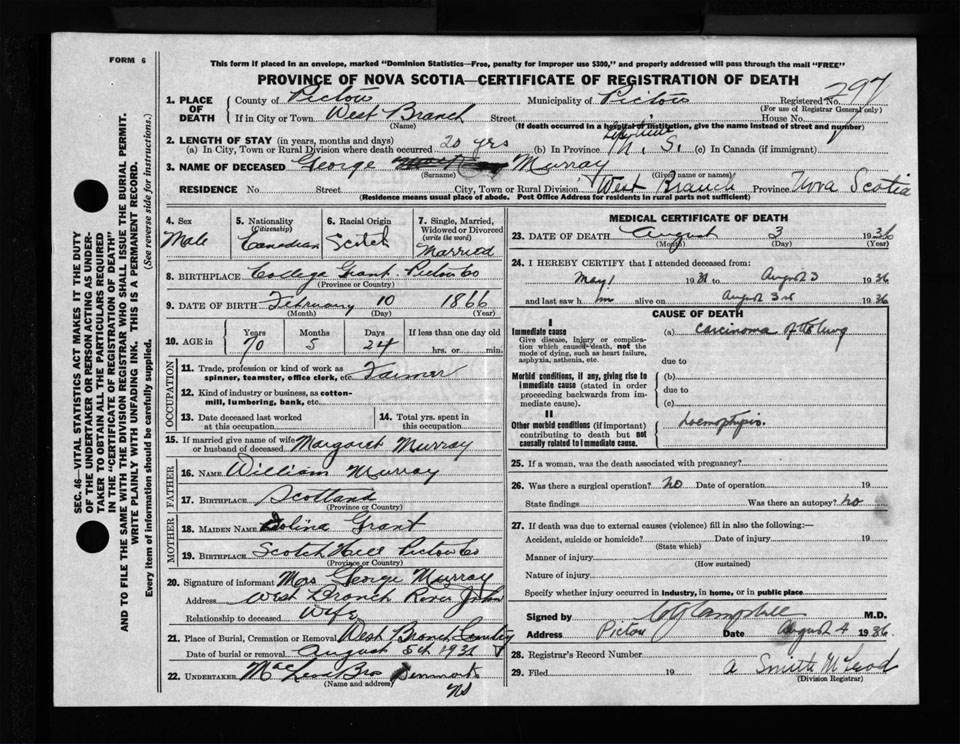 FORM 6
This form if placed in an envelope, marked "Dominion Statistics—Free, penalty for improper use $300," and properly addressed will pass through the mail "FREE"
PROVINCE OF NOVA SCOTIA—CERTIFICATE OF REGISTRATION OF DEATH
297
1. PLACE OF DEATH
County of Pictou Municipality of Pictou Registered No.
(For use of Registrar General only)
If in City or Town West Branch Street House No.
(Name) (If death occurred in a hospital or institution, give the name instead of street and number)
2. LENGTH OF STAY (in years, months and days)
(a) In City, Town or Rural Division where death occurred 20 yrs (b) In Province N. S. (c) In Canada (if immigrant)
3. NAME OF DECEASED George Murray
(Surname) (Given name or names)
RESIDENCE No. Street City, Town or Rural Division West Branch Province Nova Scotia
(Residence means usual place of abode. Post Office Address for residents in rural parts not sufficient)
4. Sex Male
5. Nationality (Citizenship) Canadian
6. Racial Origin Scotch
7. Single, Married, Widowed or Divorced (write the word) Married
8. BIRTHPLACE College Grant Pictou Co
(Province or Country)
9. DATE OF BIRTH February 10 1866
(Month) (Day) (Year)
10. AGE in Years Months Days If less than one day old
70 5 24 hrs. or min.
OCCUPATION
11. Trade, profession or kind of work as spinner, teamster, office clerk, etc. Farmer
12. Kind of industry or business, as cotton-mill, lumbering, bank, etc.
13. Date deceased last worked at this occupation
14. Total yrs. spent in this occupation
15. If married give name of wife or husband of deceased Margaret Murray
FATHER
16. NAME William Murray
17. BIRTHPLACE Scotland
(Province or Country)
MOTHER
18. MAIDEN NAME Dolina Grant
19. BIRTHPLACE Scotch Hill Pictou Co
(Province or Country)
20. Signature of informant Mrs George Murray
Address West Branch River John
Relationship to deceased Wife
21. Place of Burial, Cremation or Removal West Branch
Date of burial or removal August 5th 1931
22. UNDERTAKER MacLeod Bros Denmark
(Name and address) NS
MEDICAL CERTIFICATE OF DEATH
23. DATE OF DEATH August 3 1936
(Month) (Day) (Year)
24. I HEREBY CERTIFY that I attended deceased from:
May 1 19 to August 3 1936
and last saw him alive on August 3rd 1936
CAUSE OF DEATH
I
Immediate cause (a) carcinoma of the lung
Give disease, injury or complication which caused death, not the mode of dying, such as heart failure, asphyxia, asthenia, etc.
due to
Morbid conditions, if any, giving rise to immediate cause (stated in order proceeding backwards from immediate cause).
(b)
due to
(c)
II
Other morbid conditions (if important) contributing to death but not causally related to immediate cause.
haemophysis.
25. If a woman, was the death associated with pregnancy?
26. Was there a surgical operation? No Date of operation 19
State findings Was there an autopsy? No
27. If death was due to external causes (violence) fill in also the following:—
Accident, suicide or homicide? Date of injury 19
(State which)
Manner of injury
(How sustained)
Nature of injury
Specify whether injury occurred in industry, in home, or in public place
Signed by Campbell M.D.
Address Pictou Date August 4 1936
28. Registrar's Record Number
29. Filed 19 A Smith McLeod
(Division Registrar)
SEC. 46—VITAL STATISTICS ACT MAKES IT THE DUTY
OF THE UNDERTAKER OR PERSON ACTING AS UNDER-
TAKER TO OBTAIN ALL THE PARTICULARS REQUIRED
IN THE "CERTIFICATE OF REGISTRATION OF DEATH"
AND TO FILE THE SAME WITH THE DIVISION REGISTRAR WHO SHALL ISSUE THE BURIAL PERMIT.
WRITE PLAINLY WITH UNFADING INK. THIS IS A PERMANENT RECORD.
Every item of information should be carefully supplied. (See reverse side for instructions.)